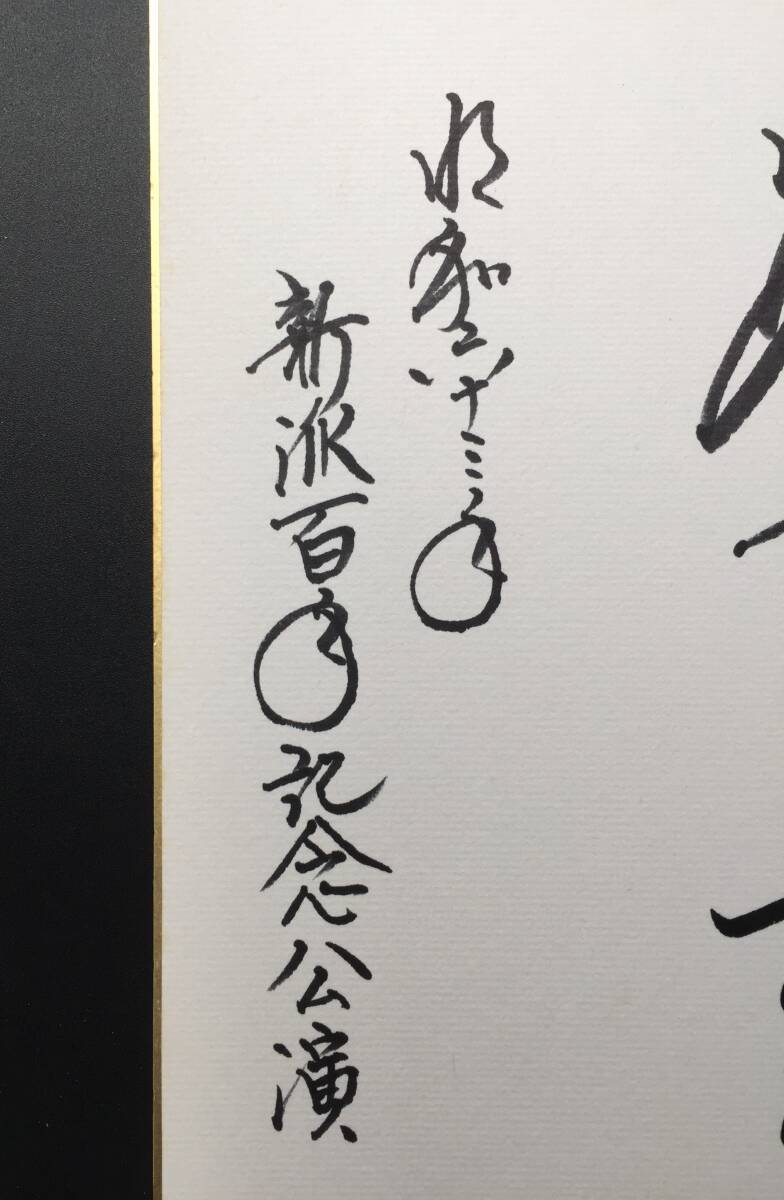 昭和六十三年
新派百年記念公演